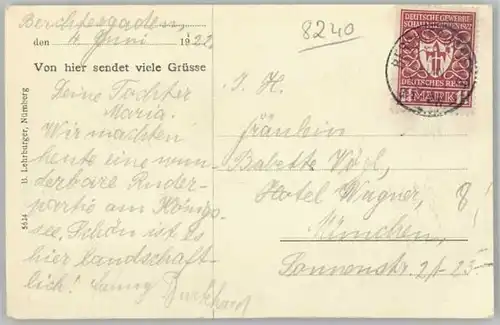 Berchtesgaden,
den 4. Juni 1922.
Von hier sendet viele Grüsse
Deine Tochter
Maria.
Wir machten
heute eine wun-
derbare Ruder-
partie am Königs-
see. Schön ist es
hier landschaft-
lich! Burkhard
5634 B. Lehrburger, Nürnberg
8240
DEUTSCHE GEWERBE
SCHAU MÜNCHEN 1922
DEUTSCHES REICH
MARK
Fräulein
Babette
Hotel Wagner,
München,
Sonnenstr. 23-25